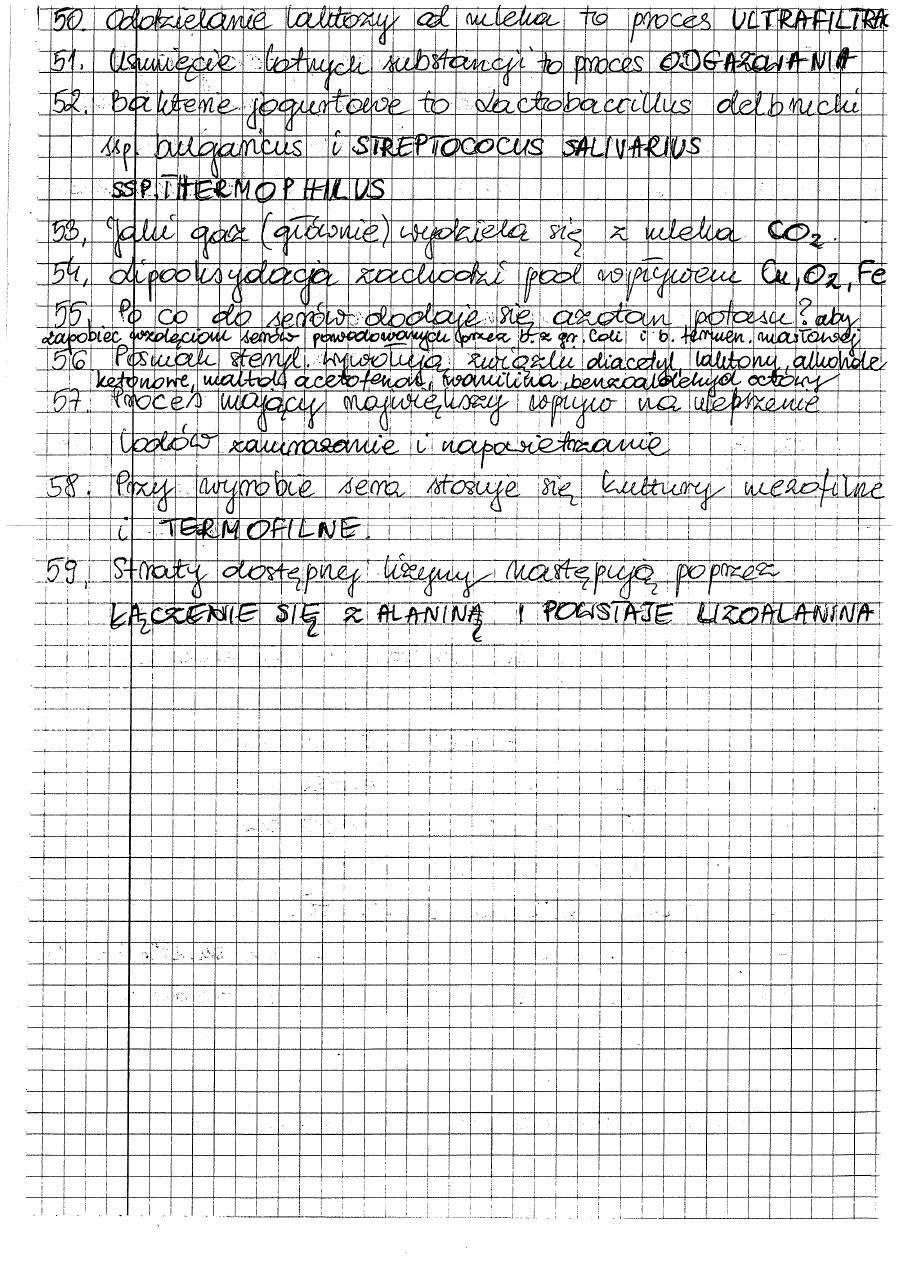 50. Oddzielanie laktozy od mleka to proces ULTRAFILTRA
51. Usunięcie lotnych substancji to proces ODGAZOWANIA
52. Bakterie jogurtowe to Lactobaccillus delbrucki
ssp. bulgaricus i STREPTOCOCUS SALIVARIUS
SSP. THERMOPHILUS
53, Jaki gaz (głównie) wydziela się z mleka CO2.
54, Lipooksydacja zachodzi pod wpływem Cu, O2, Fe
55, Po co do serów dodaje się azotan potasu? aby
zapobiec wzdęciom serów powodowanych przez b. z gr. Coli i b. fermen. masłowej
56 Posmak steryl. wywołują związki diacetyl laktony, alkohole
ketonowe, maltol, acetofenon, wanilina, benzoaldehyd octowy
57. Proces mający największy wpływ na ulepszenie
lodów zamrażanie i napowietrzanie
58. Przy wyrobie sera stosuje się kultury mezofilne
i TERMOFILNE.
59, Straty dostępnej lizyny następują poprzez
ŁĄCZENIE SIĘ Z ALANINĄ I POWSTAJE LIZOALANINA